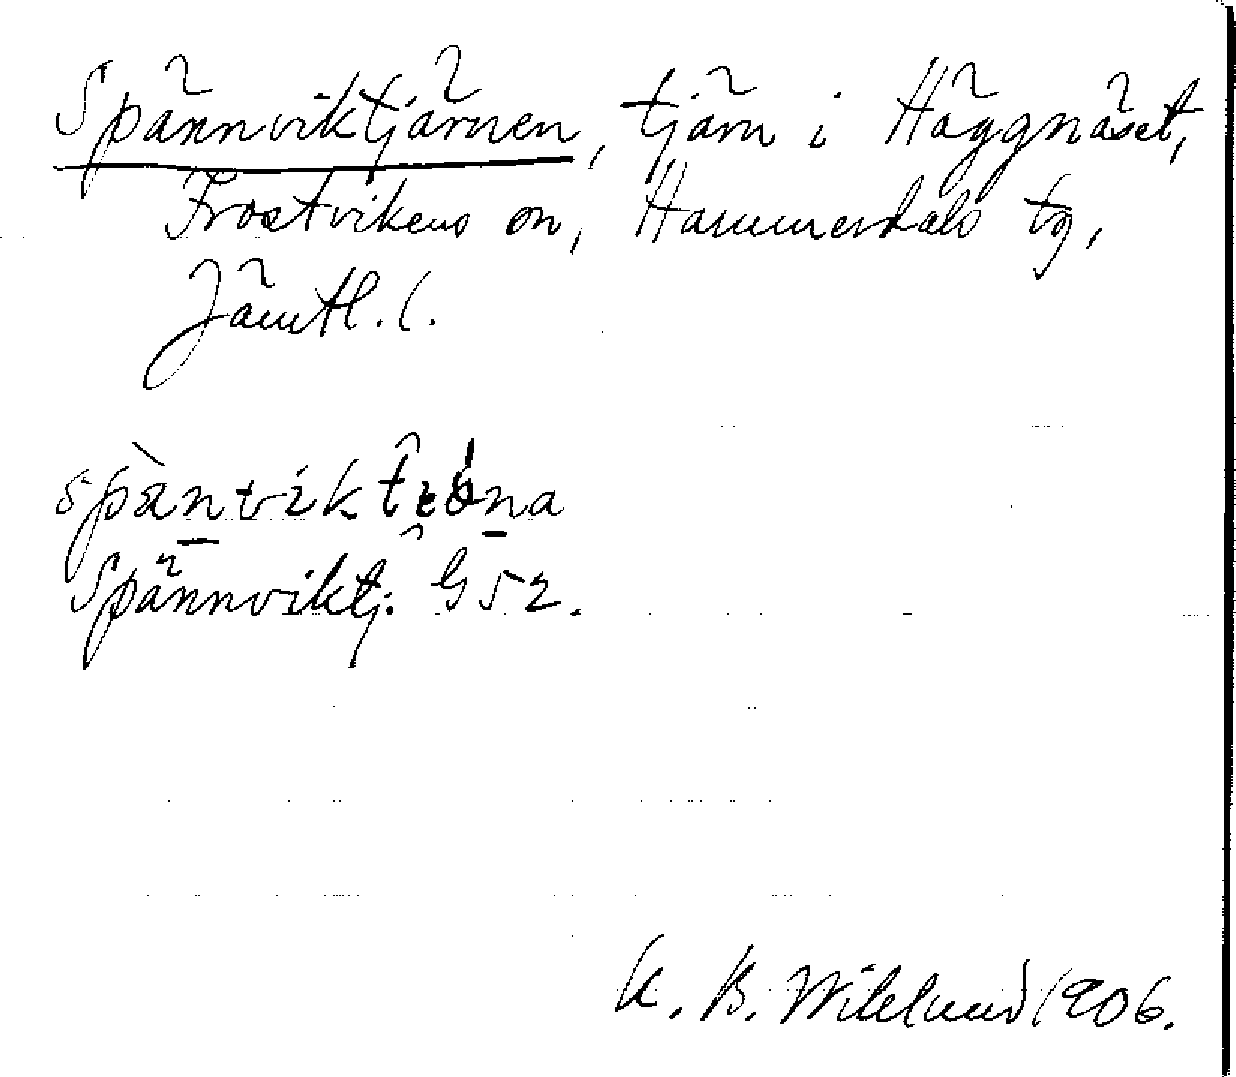 Spännviktjärnen, tjärn i Häggnäset,
Frostvikens sn, Hammerdals tg,
Jämtl. l.
Spännviktj. G 52.
K. B. Wiklund 1906.